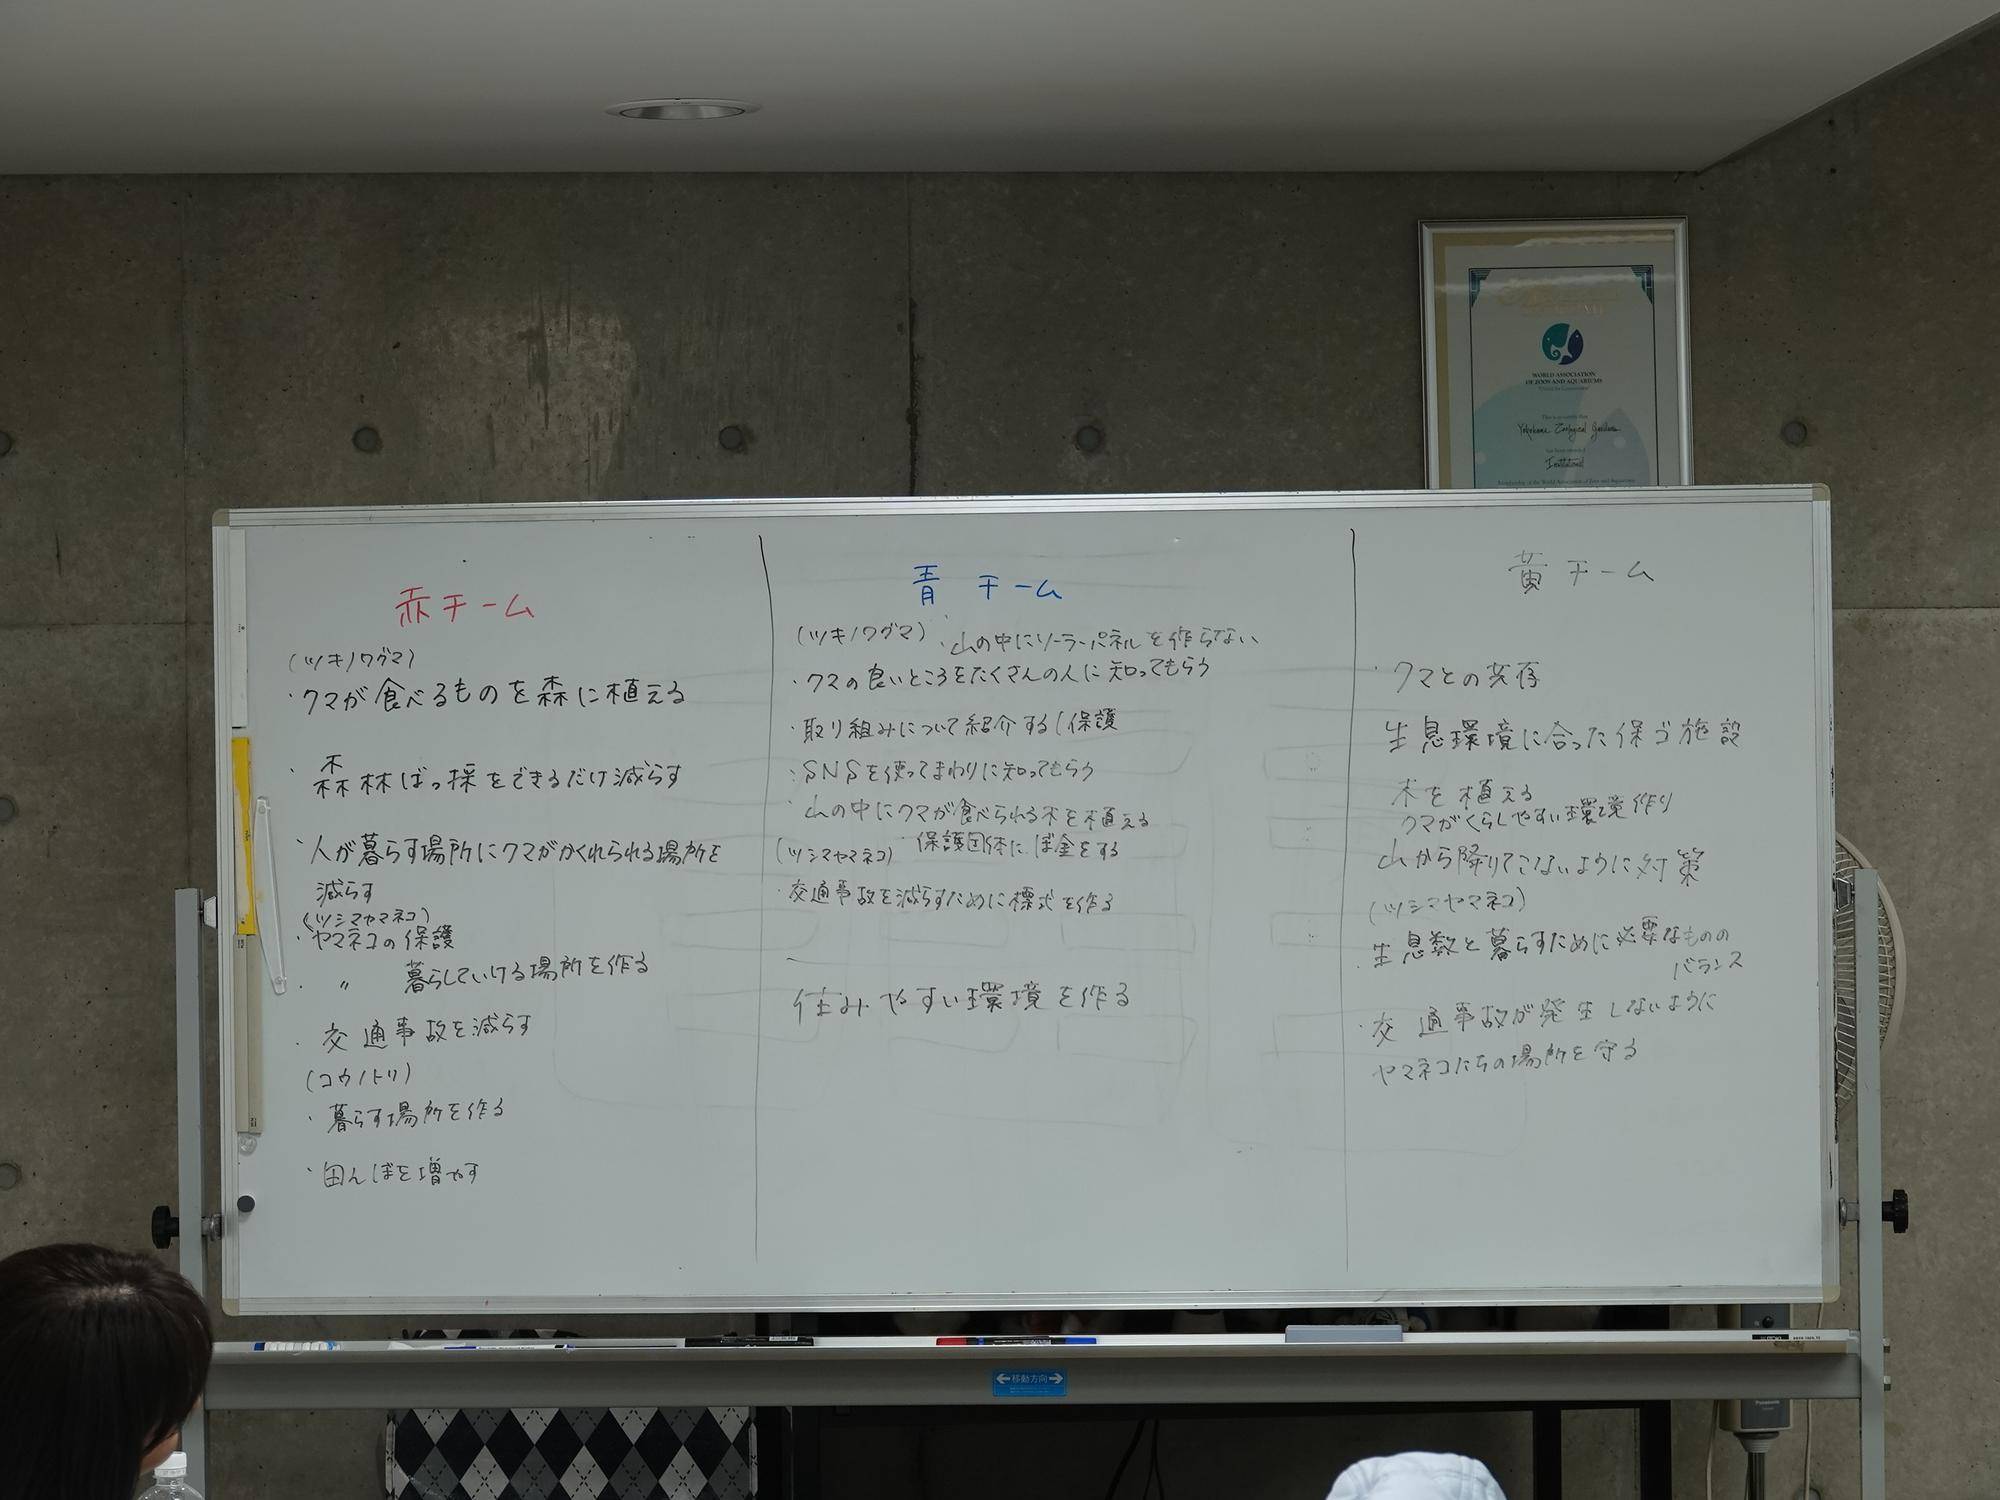 WORLD ASSOCIATION
OF ZOOS AND AQUARIUMS
"United for Conservation"
This is to certify that
Yokohama Zoological Gardens
has been awarded
Institutional
Membership of the World Association of Zoos and Aquariums
赤チーム
(ツキノワグマ)
・クマが食べるものを森に植える
・森林ばっ採をできるだけ減らす
・人が暮らす場所にクマがかくれられる場所を
減らす
(ツシマヤマネコ)
・ヤマネコの保護
・ 〃 暮らしていける場所を作る
・交通事故を減らす
(コウノトリ)
・暮らす場所を作る
・田んぼを増やす
青チーム
(ツキノワグマ) ・山の中にソーラーパネルを作らない
・クマの良いところをたくさんの人に知ってもらう
・取り組みについて紹介する(保護
・SNSを使ってまわりに知ってもらう
・山の中にクマが食べられる木を植える
・保護団体にぼ金をする
(ツシマヤマネコ)
・交通事故を減らすために標式を作る
、住みやすい環境を作る
黄チーム
・クマとの共存
生息環境に合った保ゴ施設
木を植える
クマがくらしやすい環境作り
山から降りてこないように対策
(ツシマヤマネコ)
・生息数と暮らすために必要なものの
バランス
・交通事故が発生しないように
ヤマネコたちの場所を守る
移動方向
Panasonic